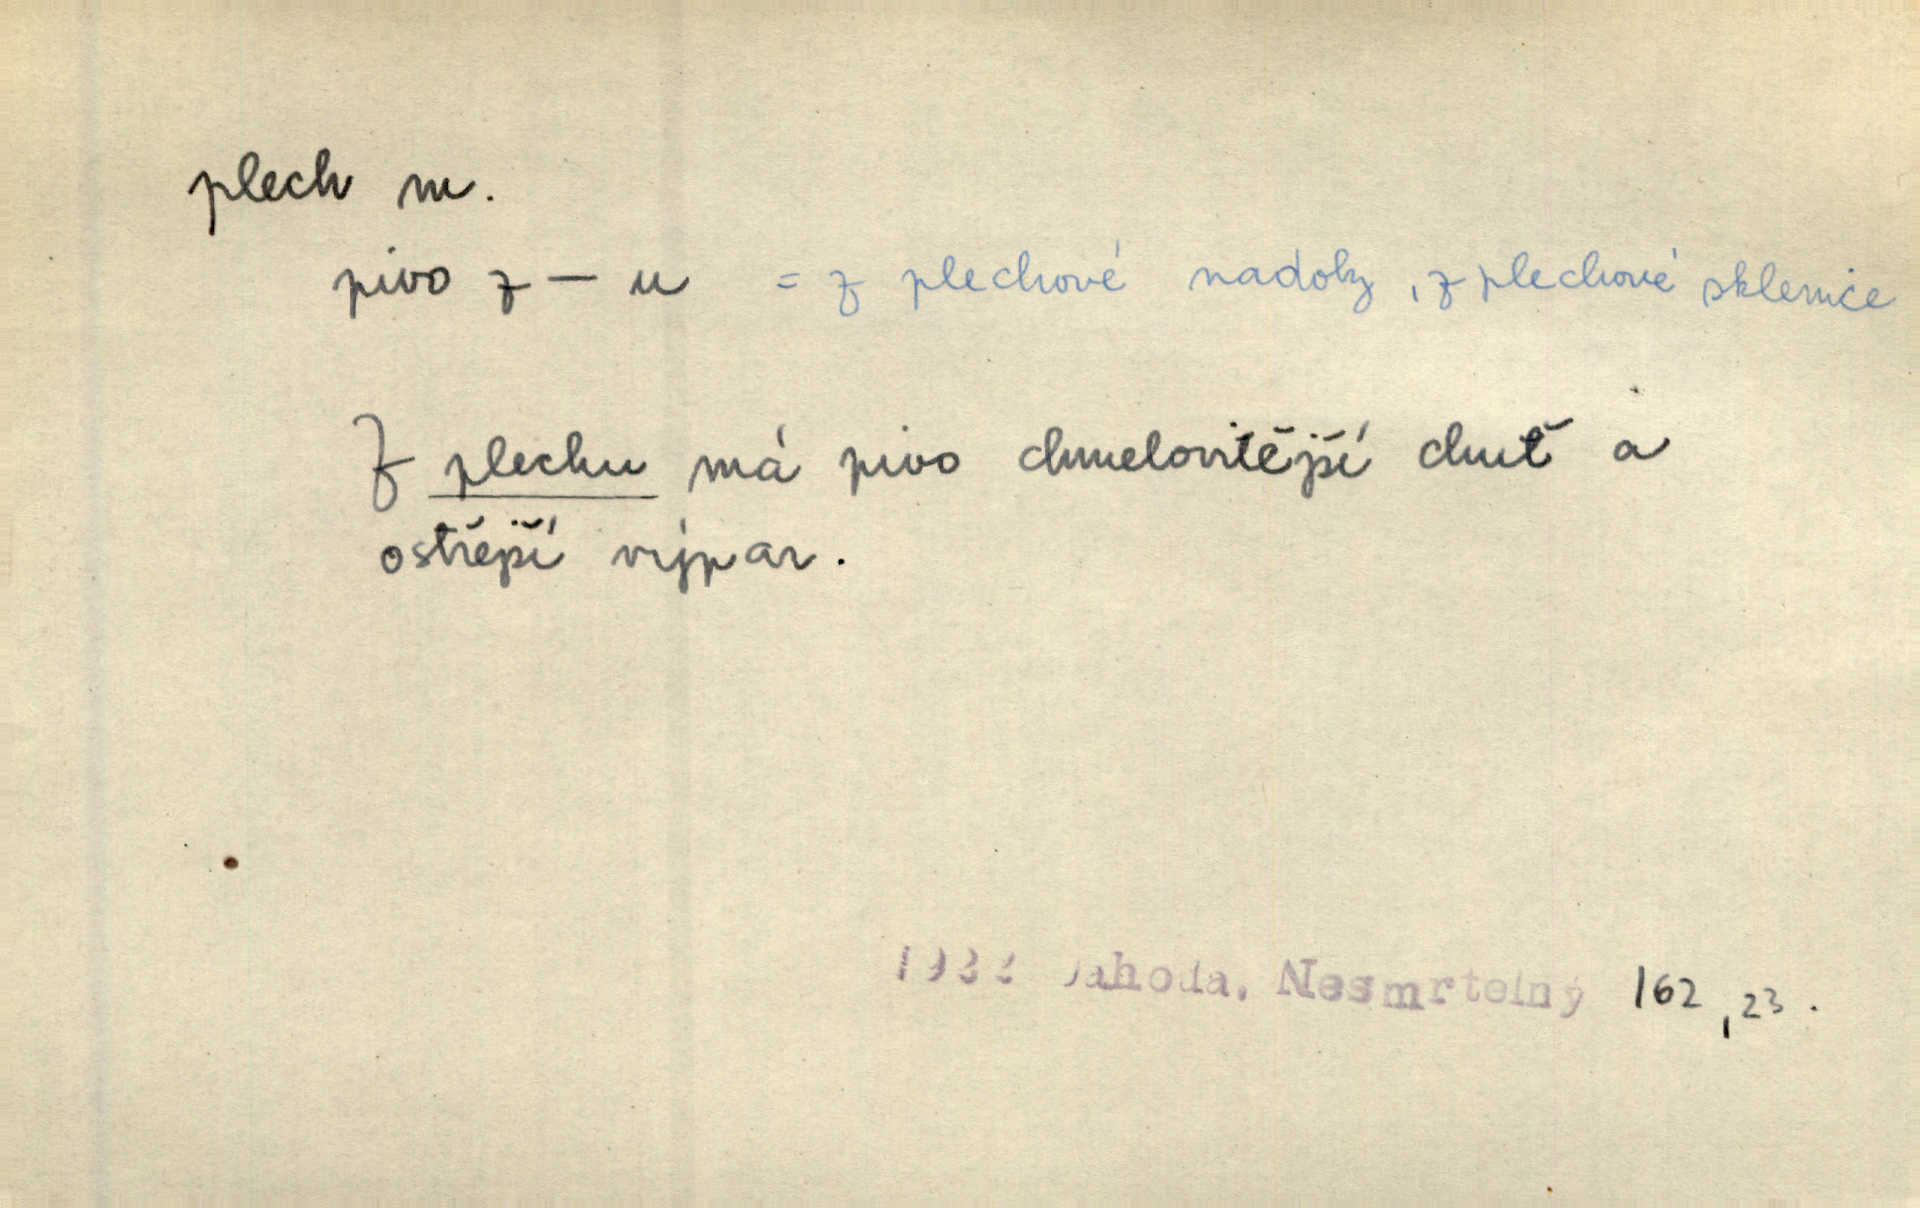 plech m.
pivo z – u = z plechové nadoby, z plechové sklenice
Z plechu má pivo chmelovitější chuť a
ostřejší výpar.
Jahoda, Nesmrtelný 162,23.